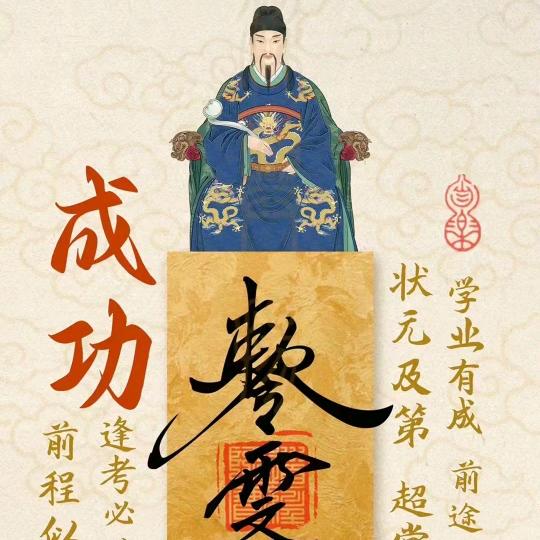 成功
学业有成 前途
状元及第 超常
逢考必
前程似